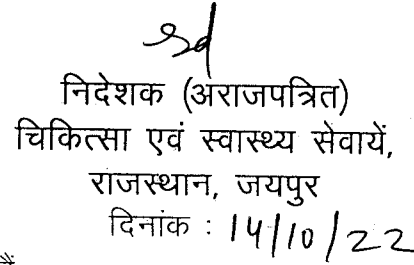 निदेशक (अराजपत्रित)
चिकित्सा एवं स्वास्थ्य सेवायें,
राजस्थान, जयपुर
दिनांक : 14/10/22